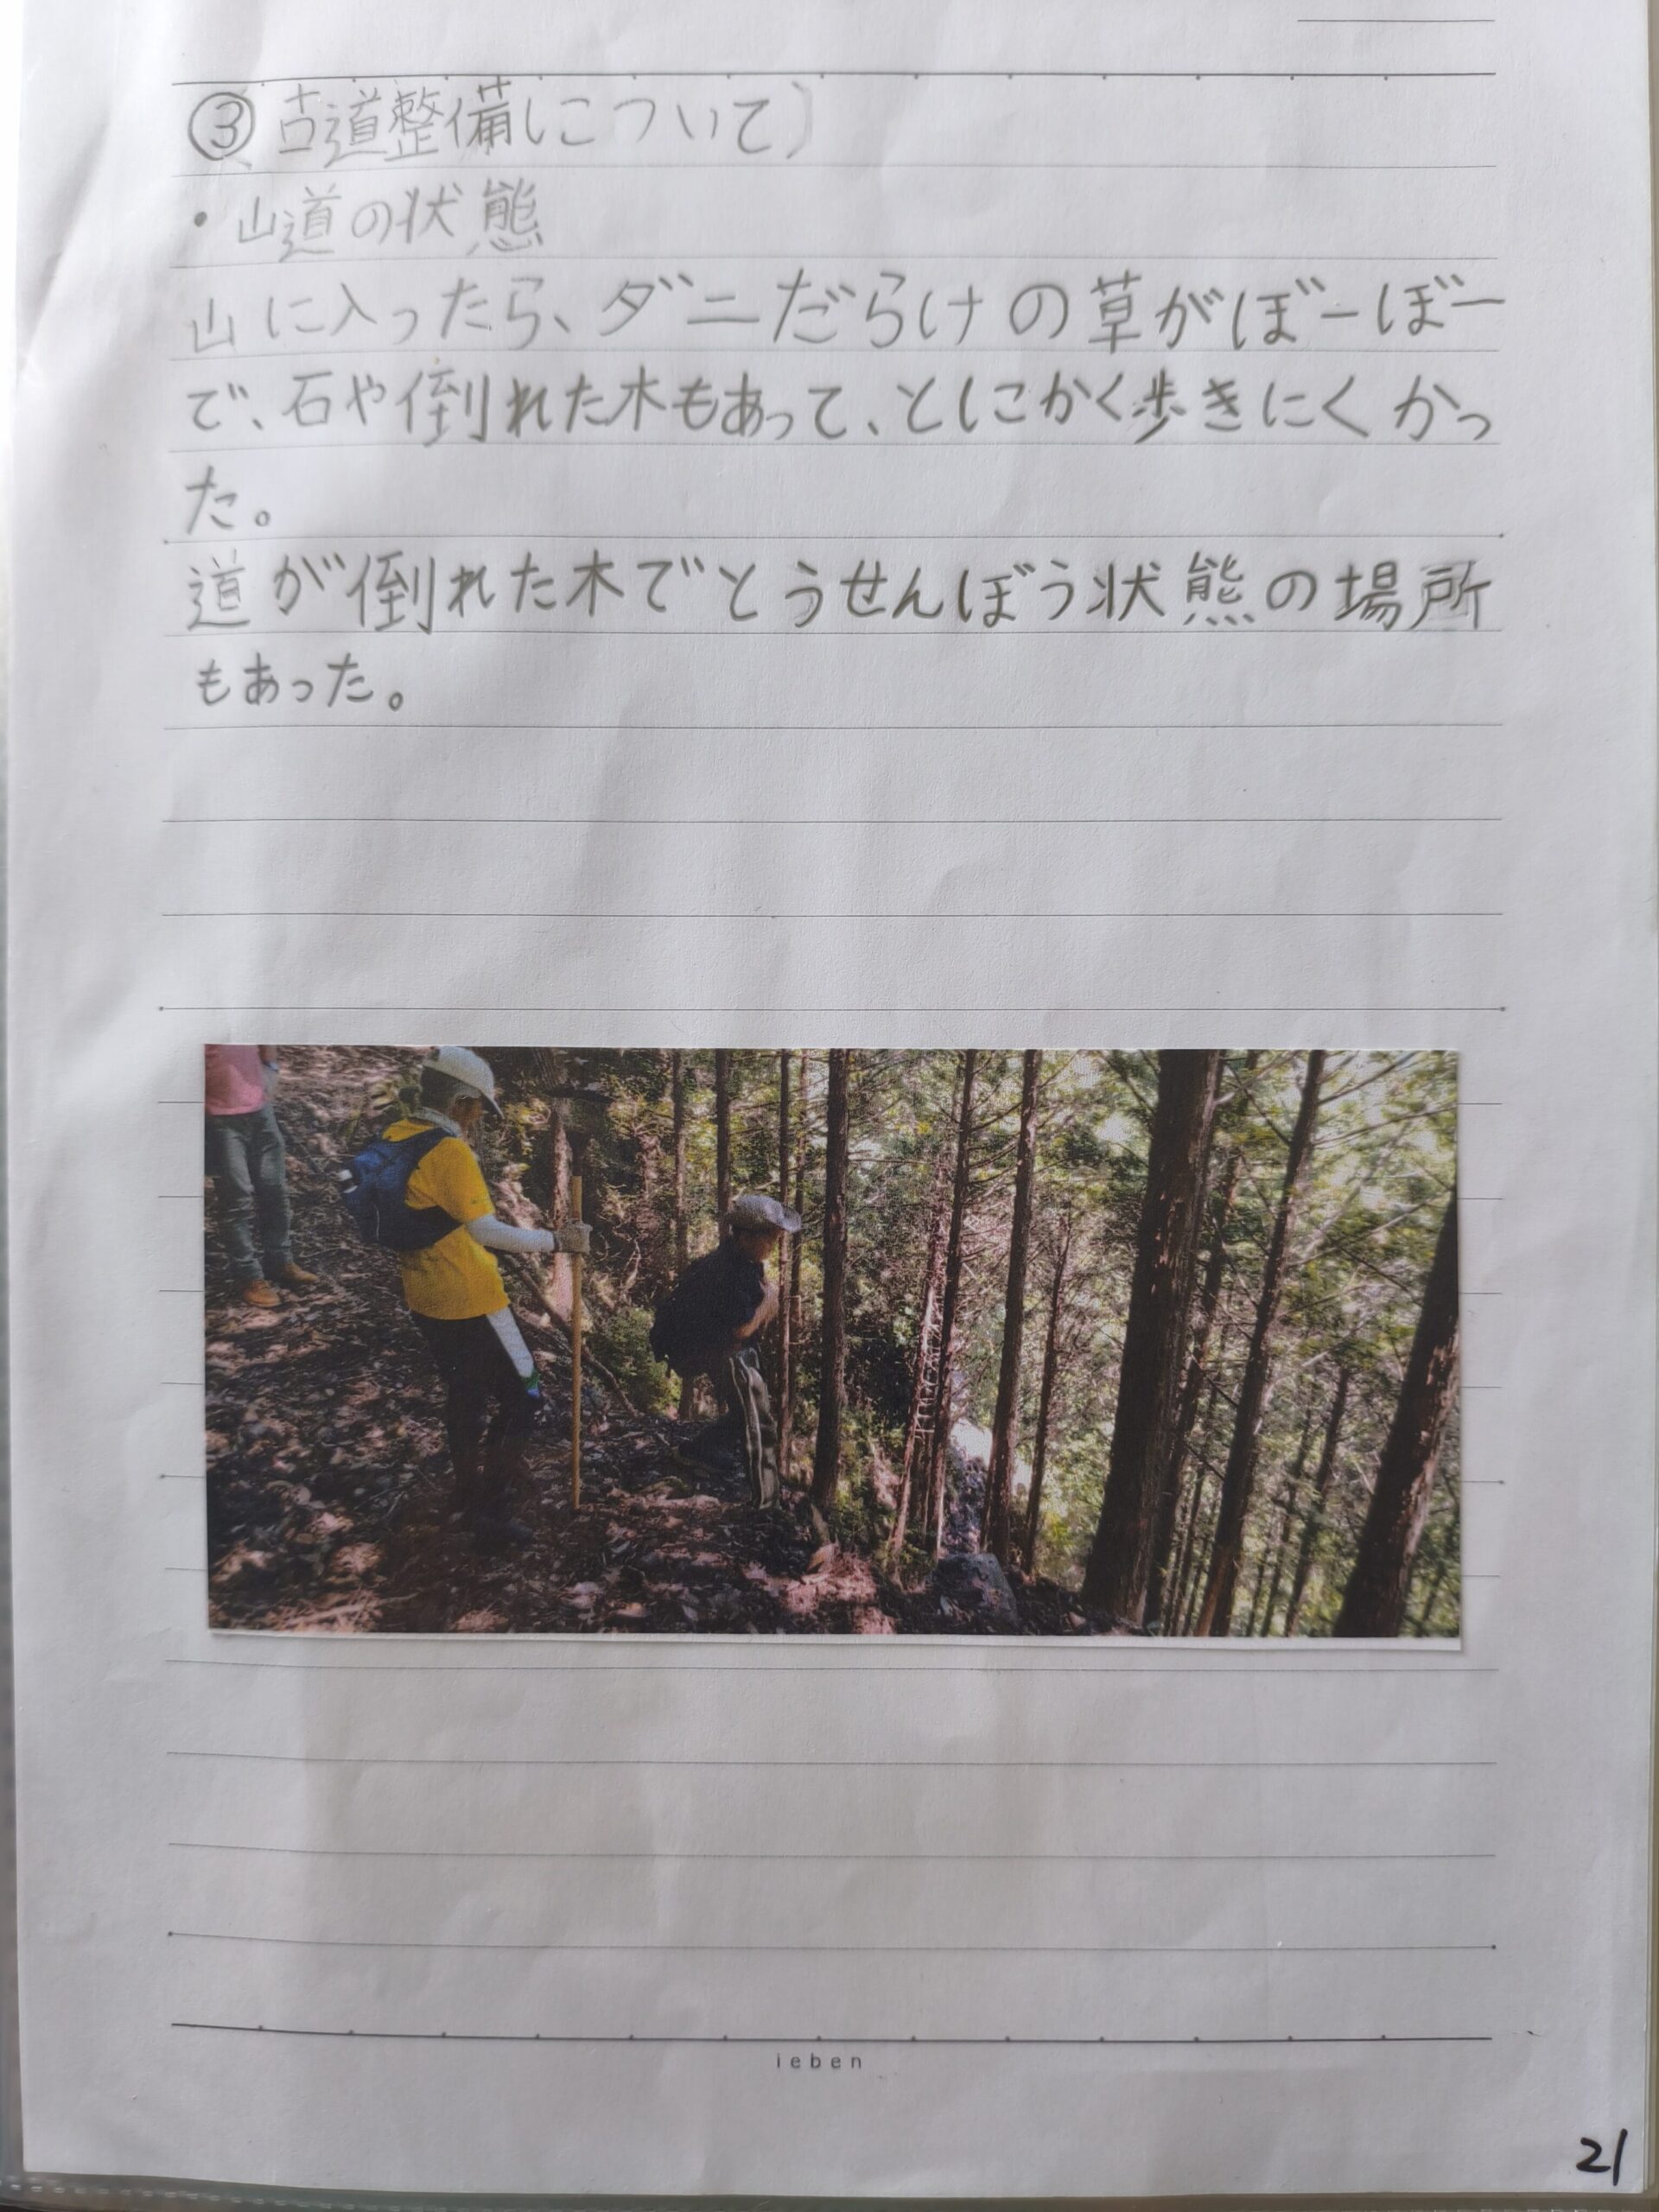 ③古道整備について〕
・山道の状態
山に入ったら、ダニだらけの草がぼーぼー
で、石や倒れた木もあって、とにかく歩きにくかっ
た。
道が倒れた木でとうせんぼう状態の場所
もあった。
ieben
21